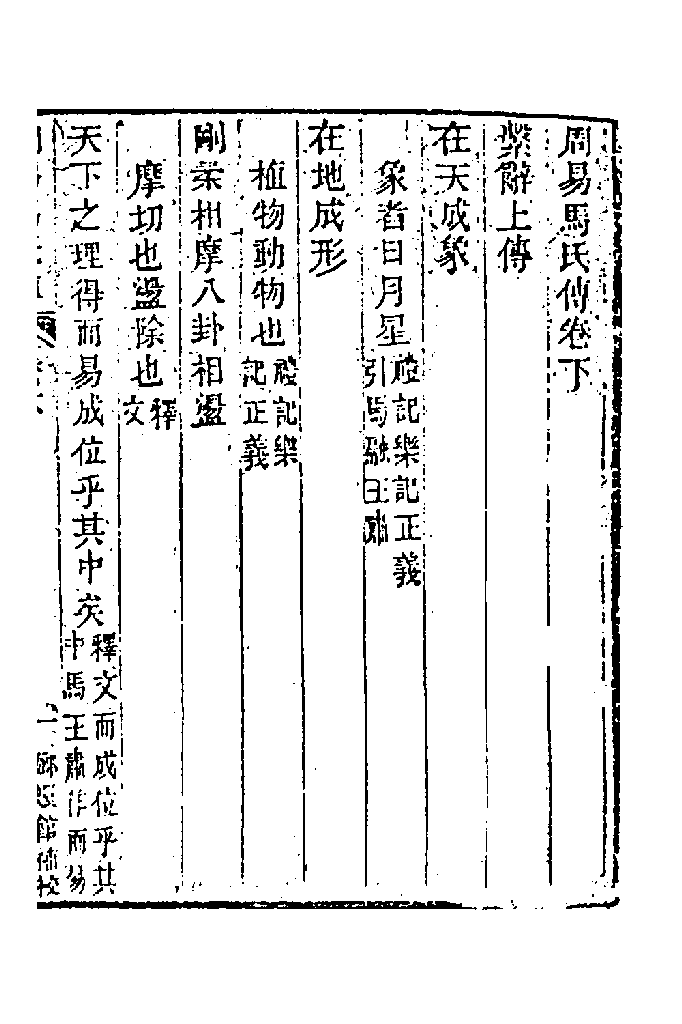 周易馬氏傳卷下
繫辭上傳
在天成象
象者日月星禮記樂記正義引馬融王肅
在地成形
植物動物也禮記樂記正義
剛柔相摩八卦相盪
摩切也盪除也釋文
天下之理得而易成位乎其中矣釋文而成位乎其中馬王肅作而易